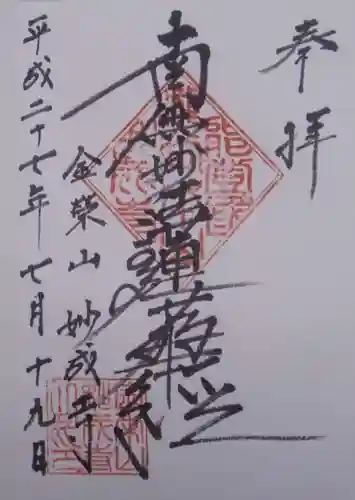 奉拝
南無妙法蓮華経
金榮山 妙成寺
平成二十七年七月十九日